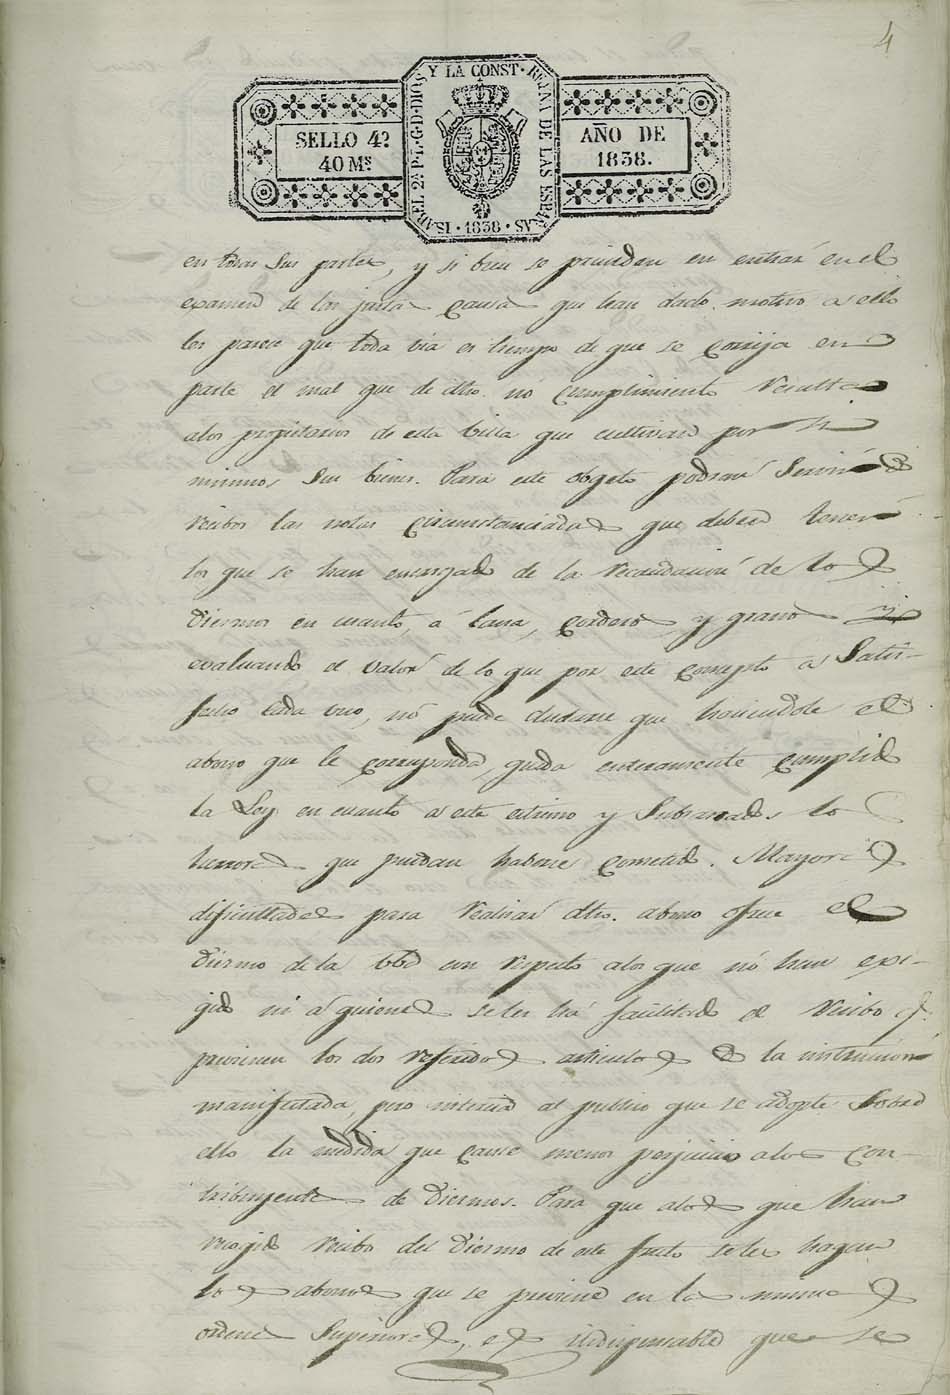 4
SELLO 4º
40 Ms.
ISABEL 2ª P. L. G. D. DIOS Y LA CONST. REINA DE LAS ESPAÑAS
· 1838 ·
AÑO DE
1838.
en todas sus partes, y si bien se prinden en entrar en el
examen de las justas causas que han dado motivo a ello
les parece que toda via es tiempo de que se corrija en
parte el mal que de dho. no cumplimiento resulta
alos propietarios de esta Villa que cultivan por si
mismos sus bienes. Para este objeto podran servir de
recibos las notas circunstanciadas que deben tener
los que se han encargado de la recaudacion de los
Diezmos en cuanto, á lana, corderos, y granos y
evaluando el valor de lo que por este concepto a satis-
fecho cada uno, no puede dudarse que haciendole el
abono que le corresponda, queda enteramente cumplida
la Ley en cuanto a este estremo y subsanados los
herrores que puedan haberse cometido. Mayores
dificultades para realizar dho. abono ofrece el
Diezmo de la con respecto alos que no han exi-
gido ni á quienes seles há facilitado el recibo q.
previenen los dos referidos articulos de la instruccion
manifestada, pero interesa al publico que se adopte sobre
ello la medida que cause menor perjuicio alos con-
tribuyentes de Diezmos. Para que alos que han
recogido recibo del Diezmo de este fruto seles hagan
los abonos que se previene en las mismas
ordenes superiores, es indispensable que se